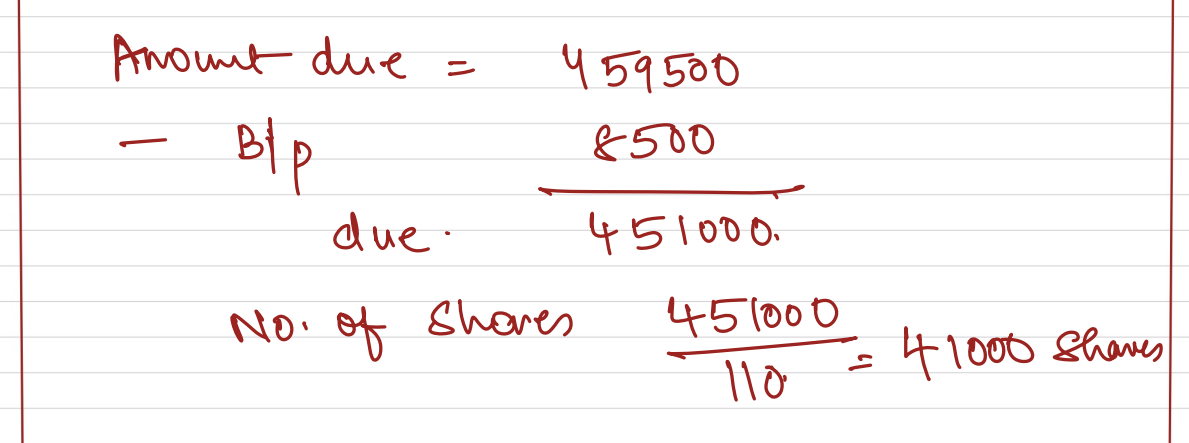 Amount due = 459500
- B/p 8500
due. 451000.
No. of Shares 451000
110 = 41000 Shares